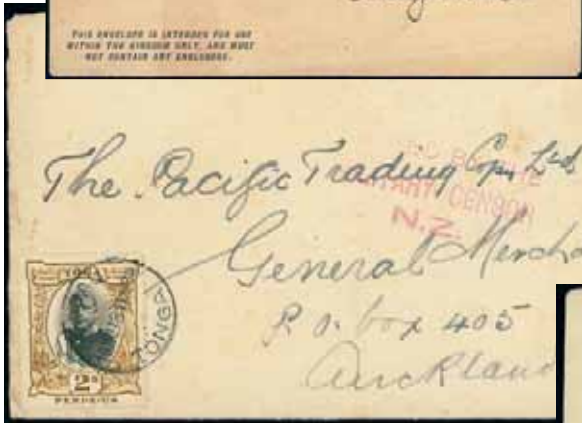 THIS ENVELOPE IS INTENDED FOR USE
WITHIN THE KINGDOM ONLY, AND MUST
NOT CONTAIN ANY ENCLOSURE.
The Pacific Trading Coy Ltd
CENSOR
N.Z.
General Mercha
P.O. box 405
Auckland
TOGA
TONGA
2
PENI-E-UA